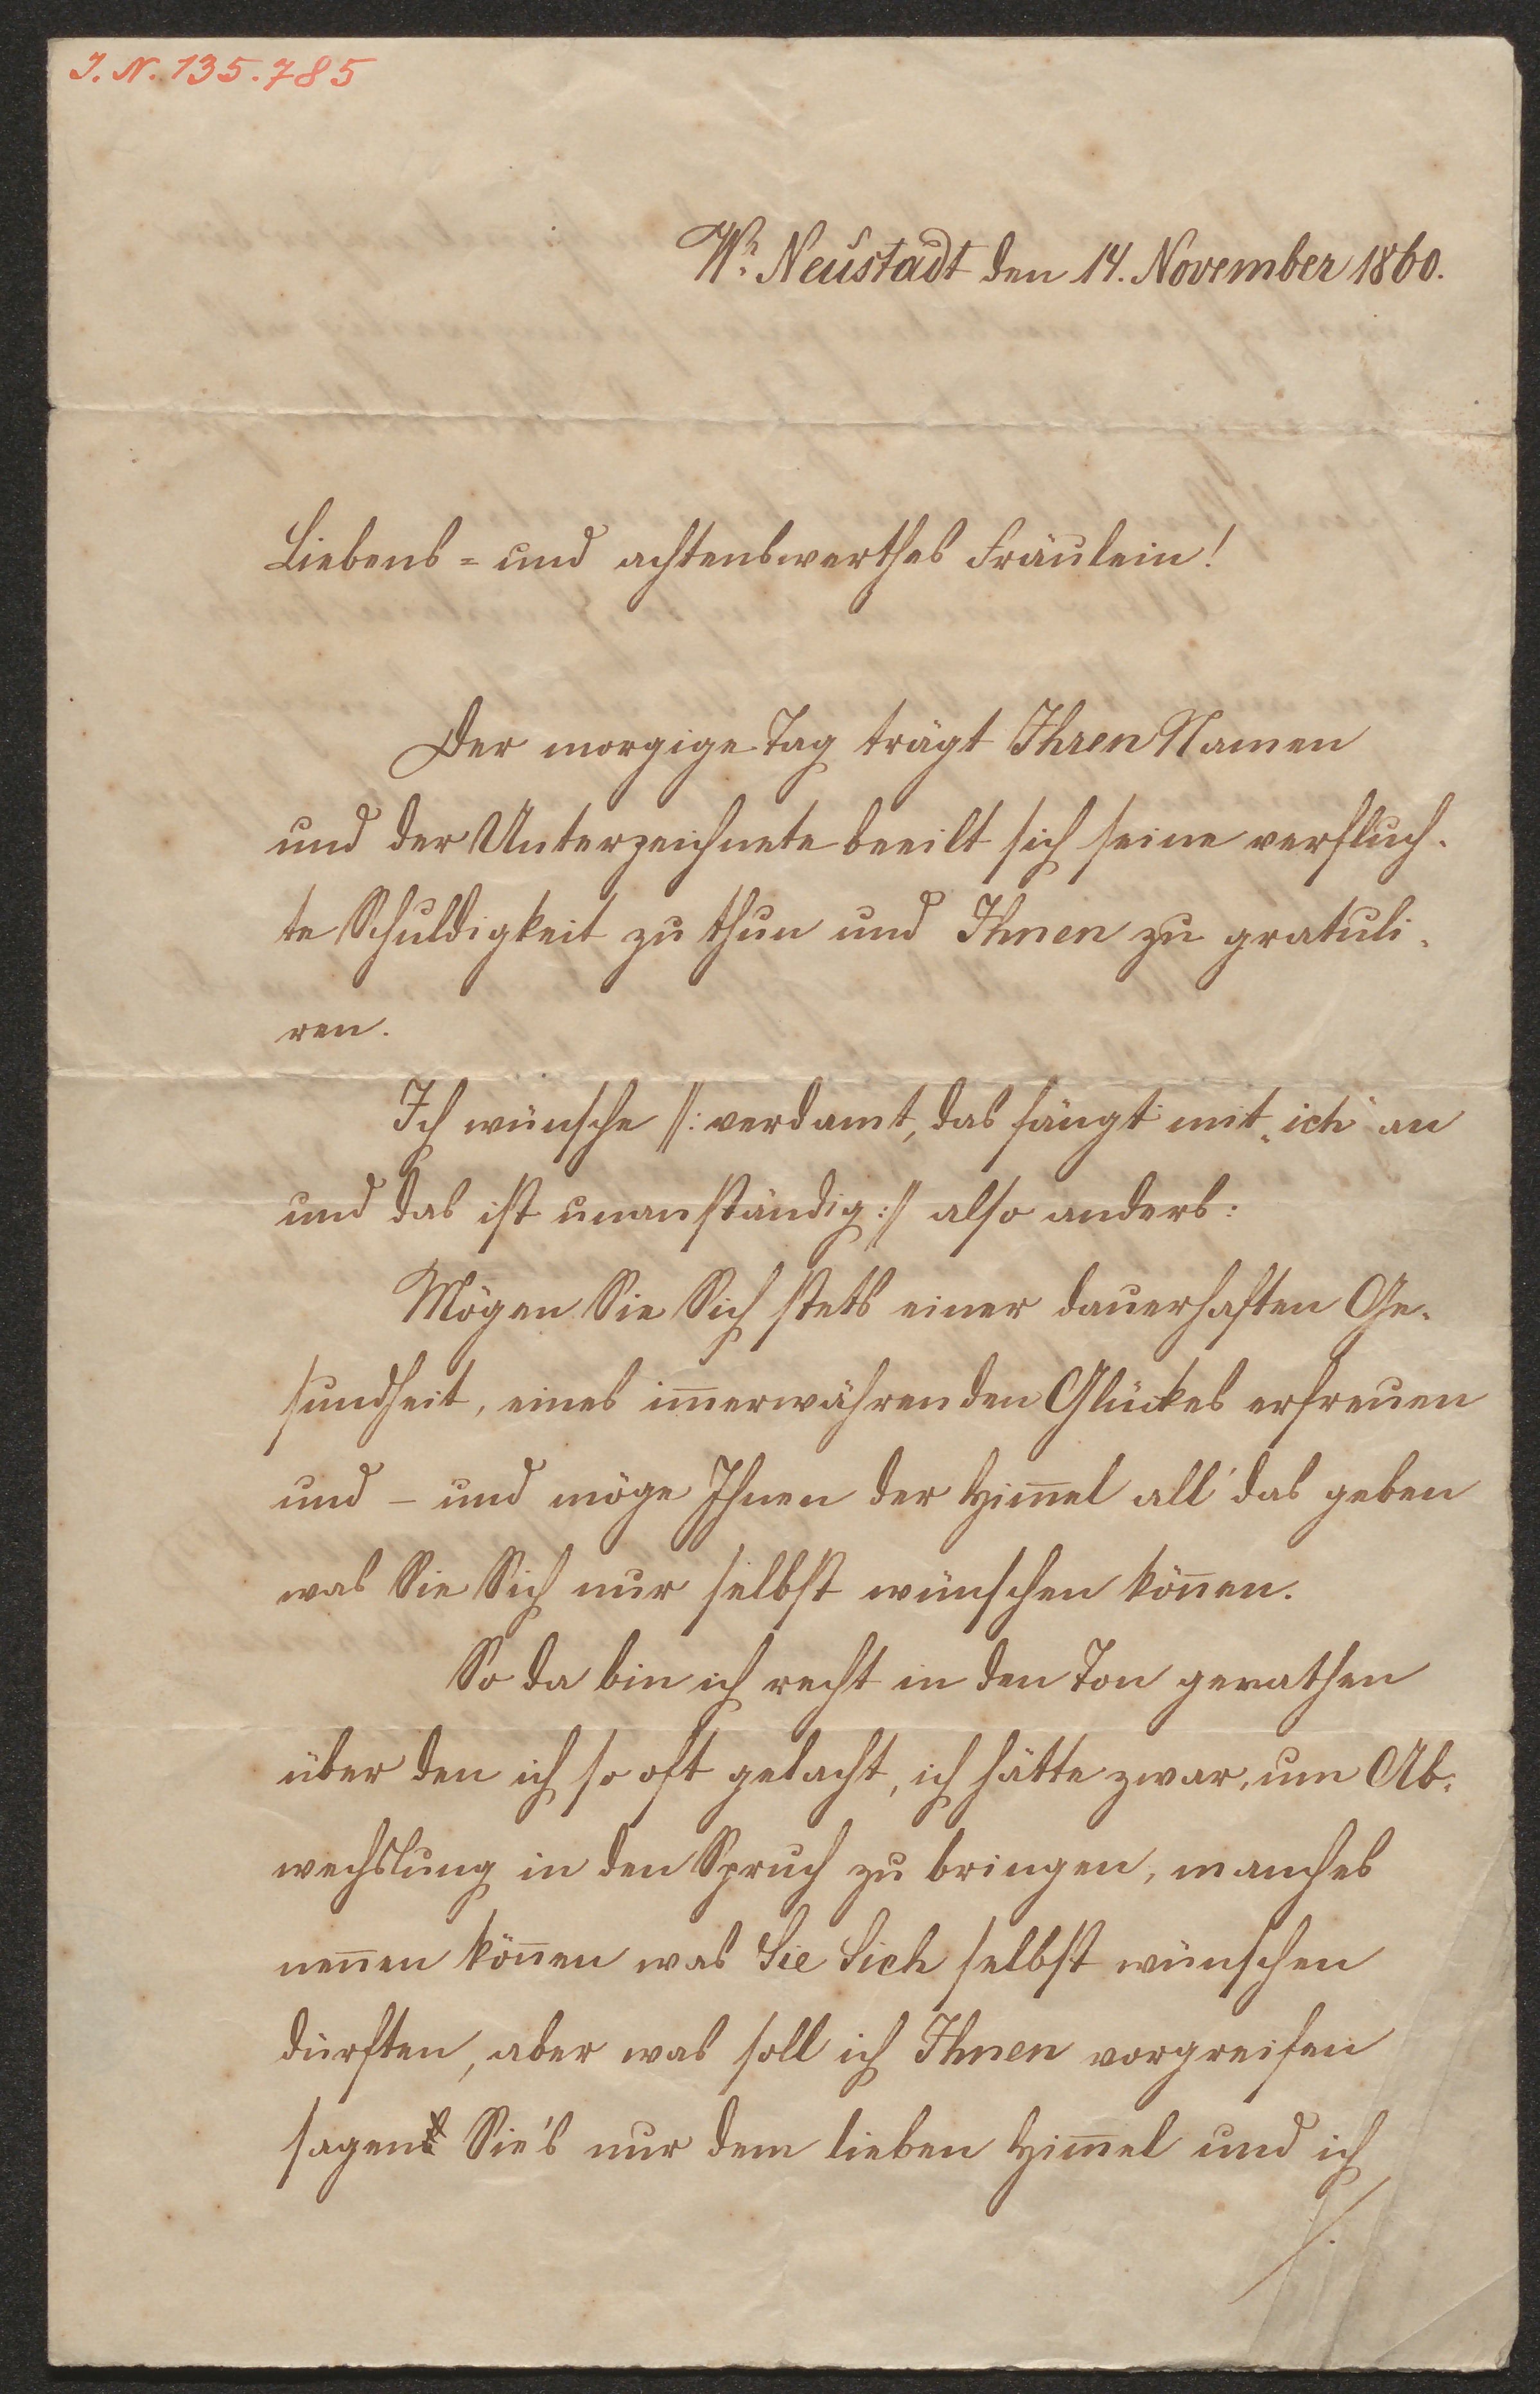 I. N. 135.785
Wr. Neustadt den 14. November 1860.
Liebens- und achtenswerthes Fräulein!
Der morgige Tag trägt Ihren Namen
und der Unterzeichnete beeilt sich seine verfluch-
te Schuldigkeit zu thun und Ihnen zu gratuli-
ren.
Ich wünsche //: verdamt, das fängt mit „ich“ an
und das ist unanständig :// also anders:
Mögen Sie Sich stets einer dauerhaften Ge-
sundheit, eines im̅erwährenden Glückes erfreuen
und – und möge Ihnen der Him̅el all' das geben
was Sie Sich nur selbst wünschen kön̅en.
So da bin ich recht in den Ton gerathen
über den ich so oft gelacht, ich hätte zwar, um Ab-
wechslung in den Spruch zu bringen, manches
nen̅en kön̅en was Sie Sich selbst wünschen
dürften, aber was soll ich Ihnen vorgreifen
sagen Sie's nur dem lieben Him̅el und ich
./.